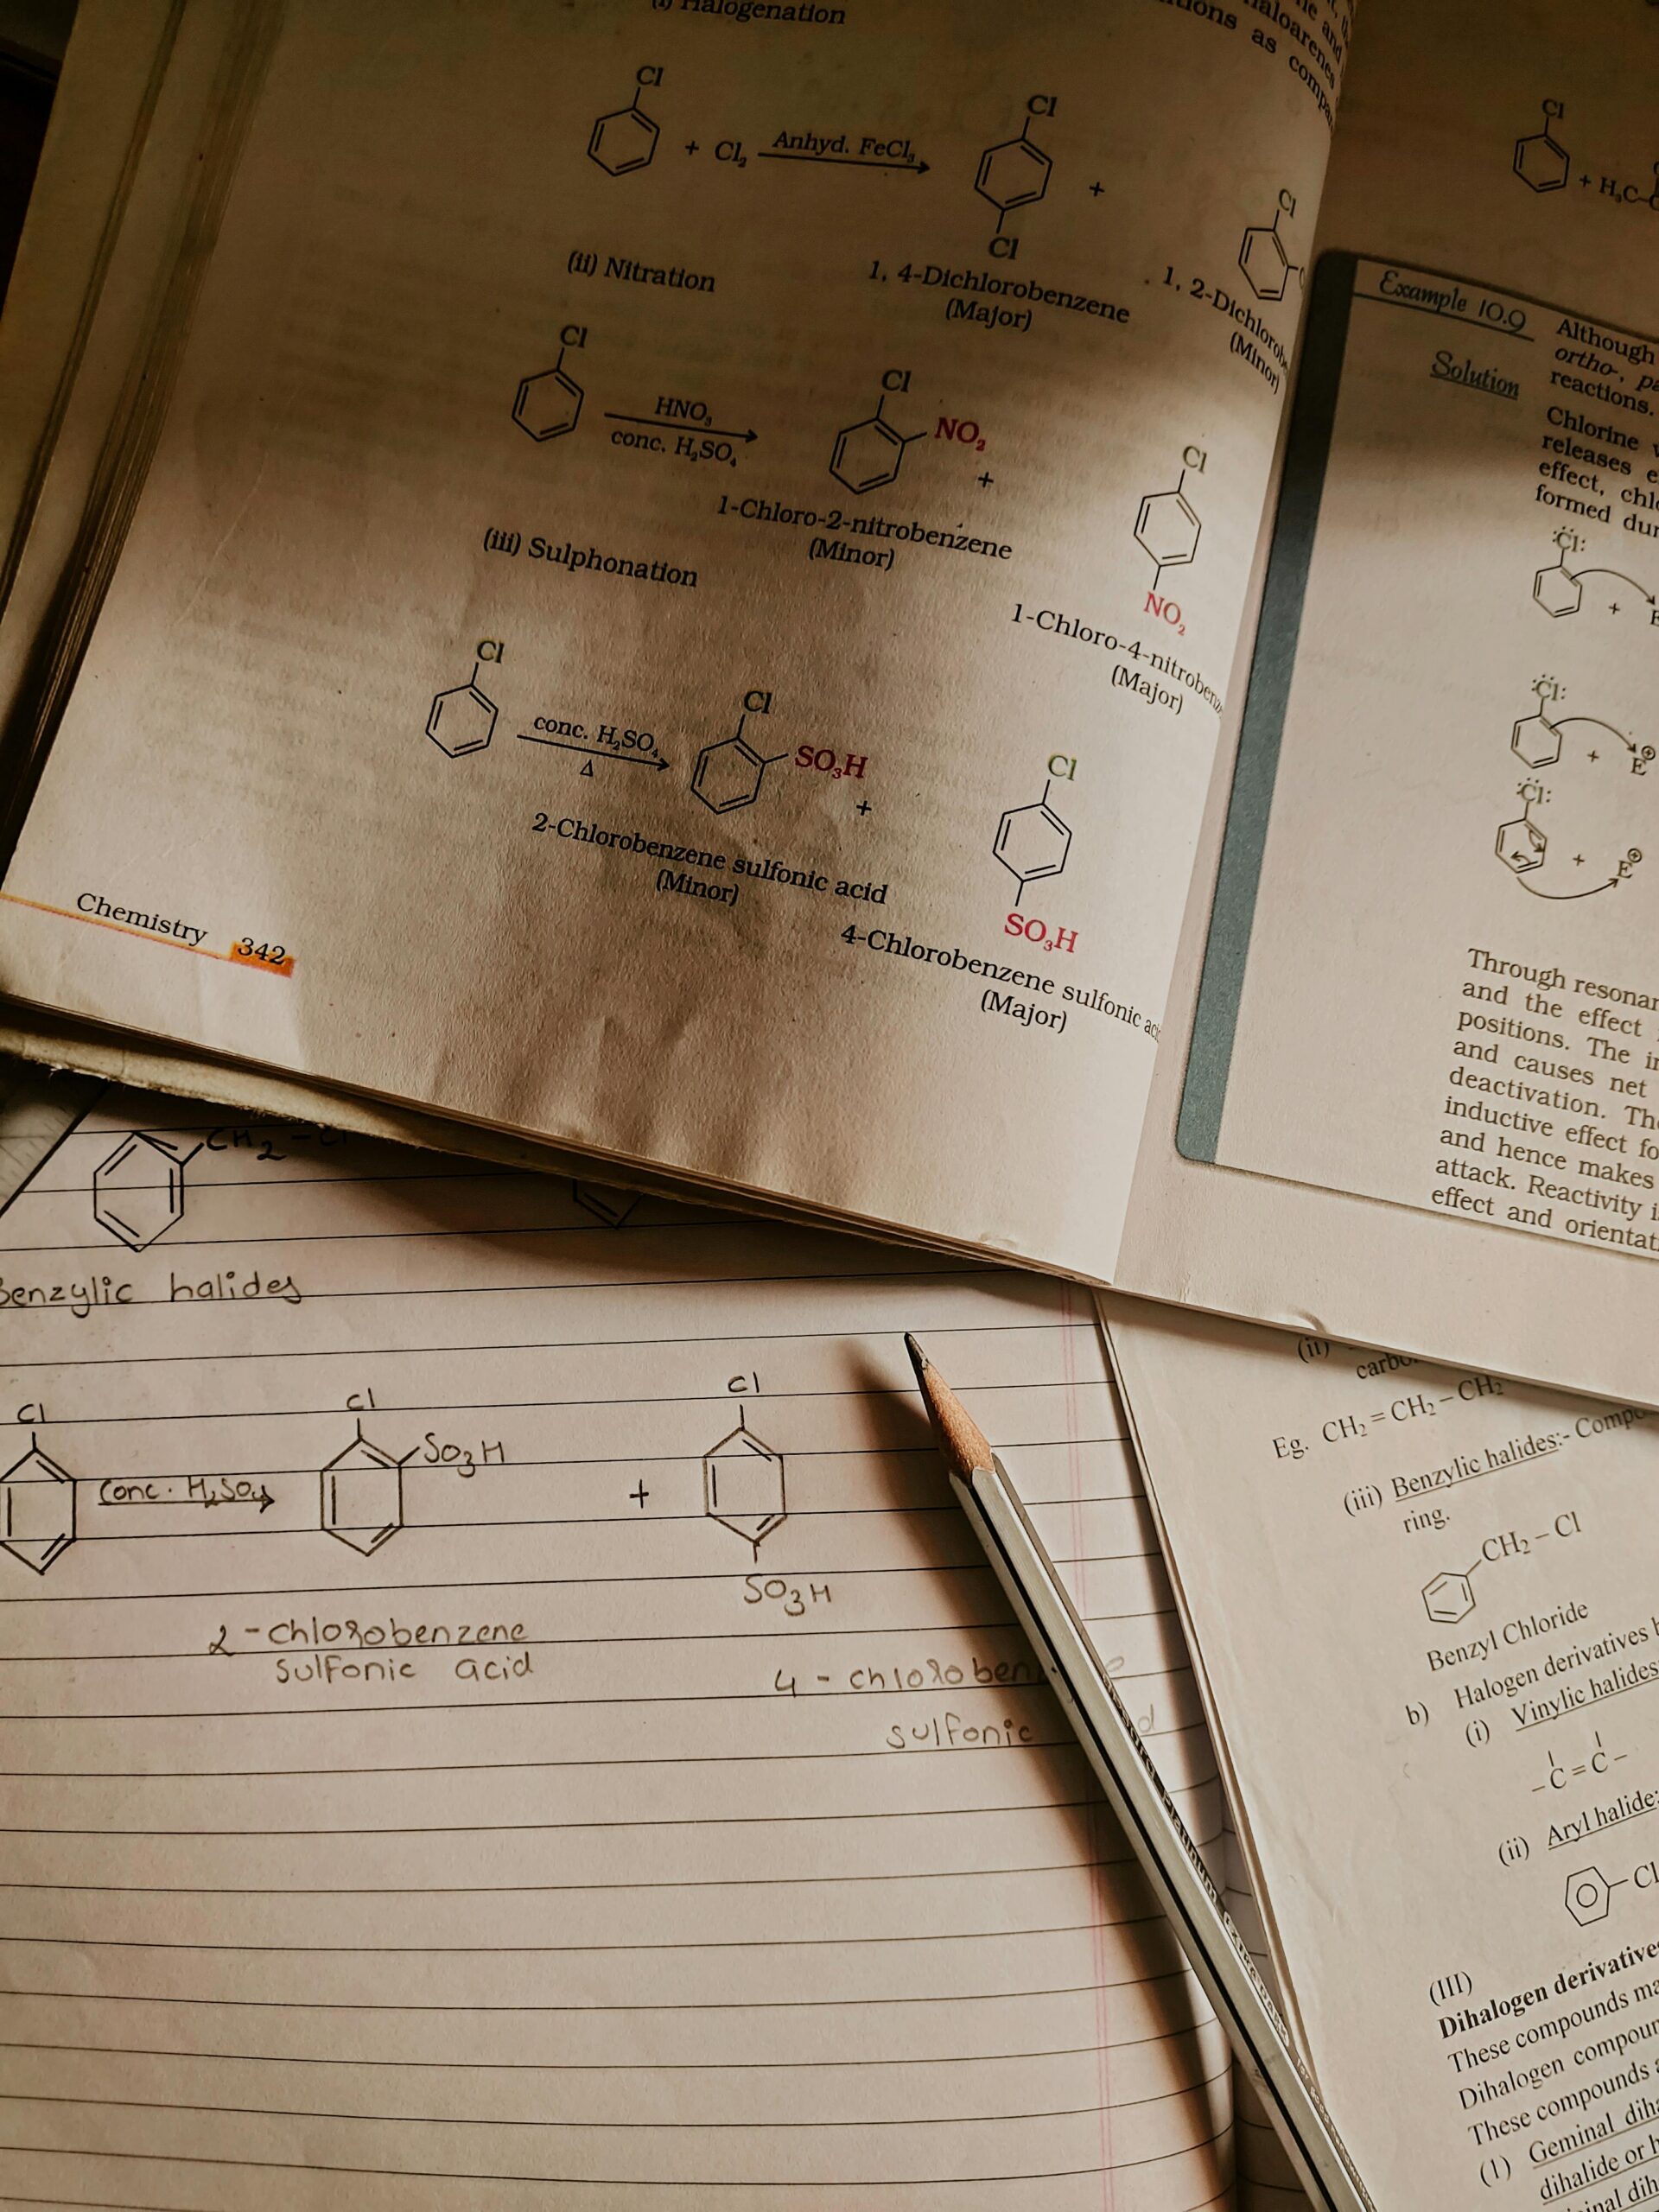 (i) Halogenation
Cl
+ Cl₂ Anhyd. FeCl₃
Cl
Cl
+
Cl
1, 4-Dichlorobenzene
(Major)
(Minor)
(ii) Nitration
Cl
HNO₃
conc. H₂SO₄
Cl
NO₂
+
1-Chloro-2-nitrobenzene
(Minor)
Cl
NO₂
(Major)
(iii) Sulphonation
Cl
conc. H₂SO₄
Δ
Cl
SO₃H
+
2-Chlorobenzene sulfonic acid
(Minor)
Cl
SO₃H
4-Chlorobenzene sulfonic
(Major)
Chemistry 342
tions as
haloarenes
Cl
+ H₃C-C
Example 10.9
Although
ortho-,
reactions.
Solution
Chlorine
releases
effect,
formed
:C̈l:
+
:C̈l:
+ E⊕
:C̈l:
+ E⊕
Through
and the effect
positions. The
and causes net
deactivation.
inductive effect
and hence makes
attack. Reactivity
effect and
CH₂-Cl
Benzylic halides
Cl
Conc. H₂SO₄
Cl
SO₃H
+
Cl
SO₃H
2-chlorobenzene
sulfonic acid
4-
sulfonic
(ii)
Eg. CH₂ = CH₂ – CH₂
(iii) Benzylic halides:-
ring.
CH₂ – Cl
Benzyl Chloride
b) Halogen derivatives
(i) Vinylic halides
–C = C–
(ii) Aryl halide:
Cl
(III)
Dihalogen derivatives
These compounds
Dihalogen
These compounds
(1) Geminal
dihalide or